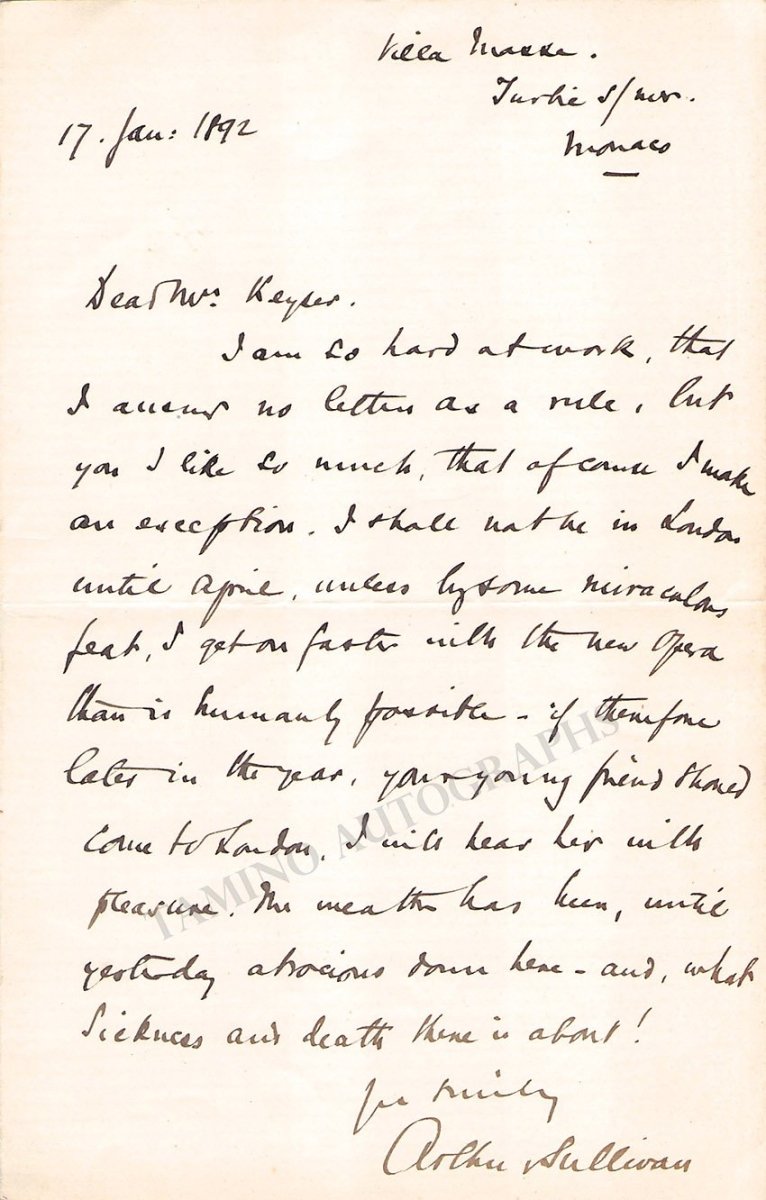 Villa Masse.
Turbie s/mer.
17. Jan: 1892
Monaco
Dear Mrs. Keyser.
I am so hard at work, that
I answer no letters as a rule, but
you I like so much, that of course I make
an exception. I shall not be in London
until April, unless by some miraculous
feat, I get on faster with the new Opera
than is humanly possible - if therefore
later in the year, your young friend should
come to London, I will hear her with
pleasure. The weather has been, until
yesterday atrocious down here - and, what
sickness and death there is about!
Yrs sincerely
Arthur Sullivan
TAMINO AUTOGRAPHS